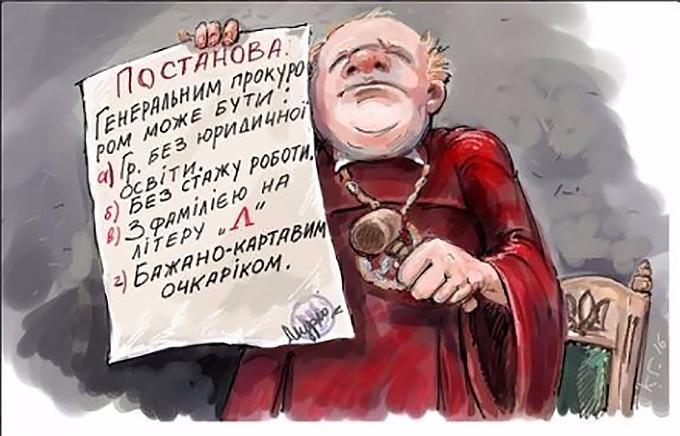 ПОСТАНОВА.
Генеральним прокуро
ром може бути:
а) Гр. без юридичної
освіти.
б) Без стажу роботи.
в) З фамілією на
літеру „Л"
г) Бажано-картавим
очкаріком.
К.Г. 16